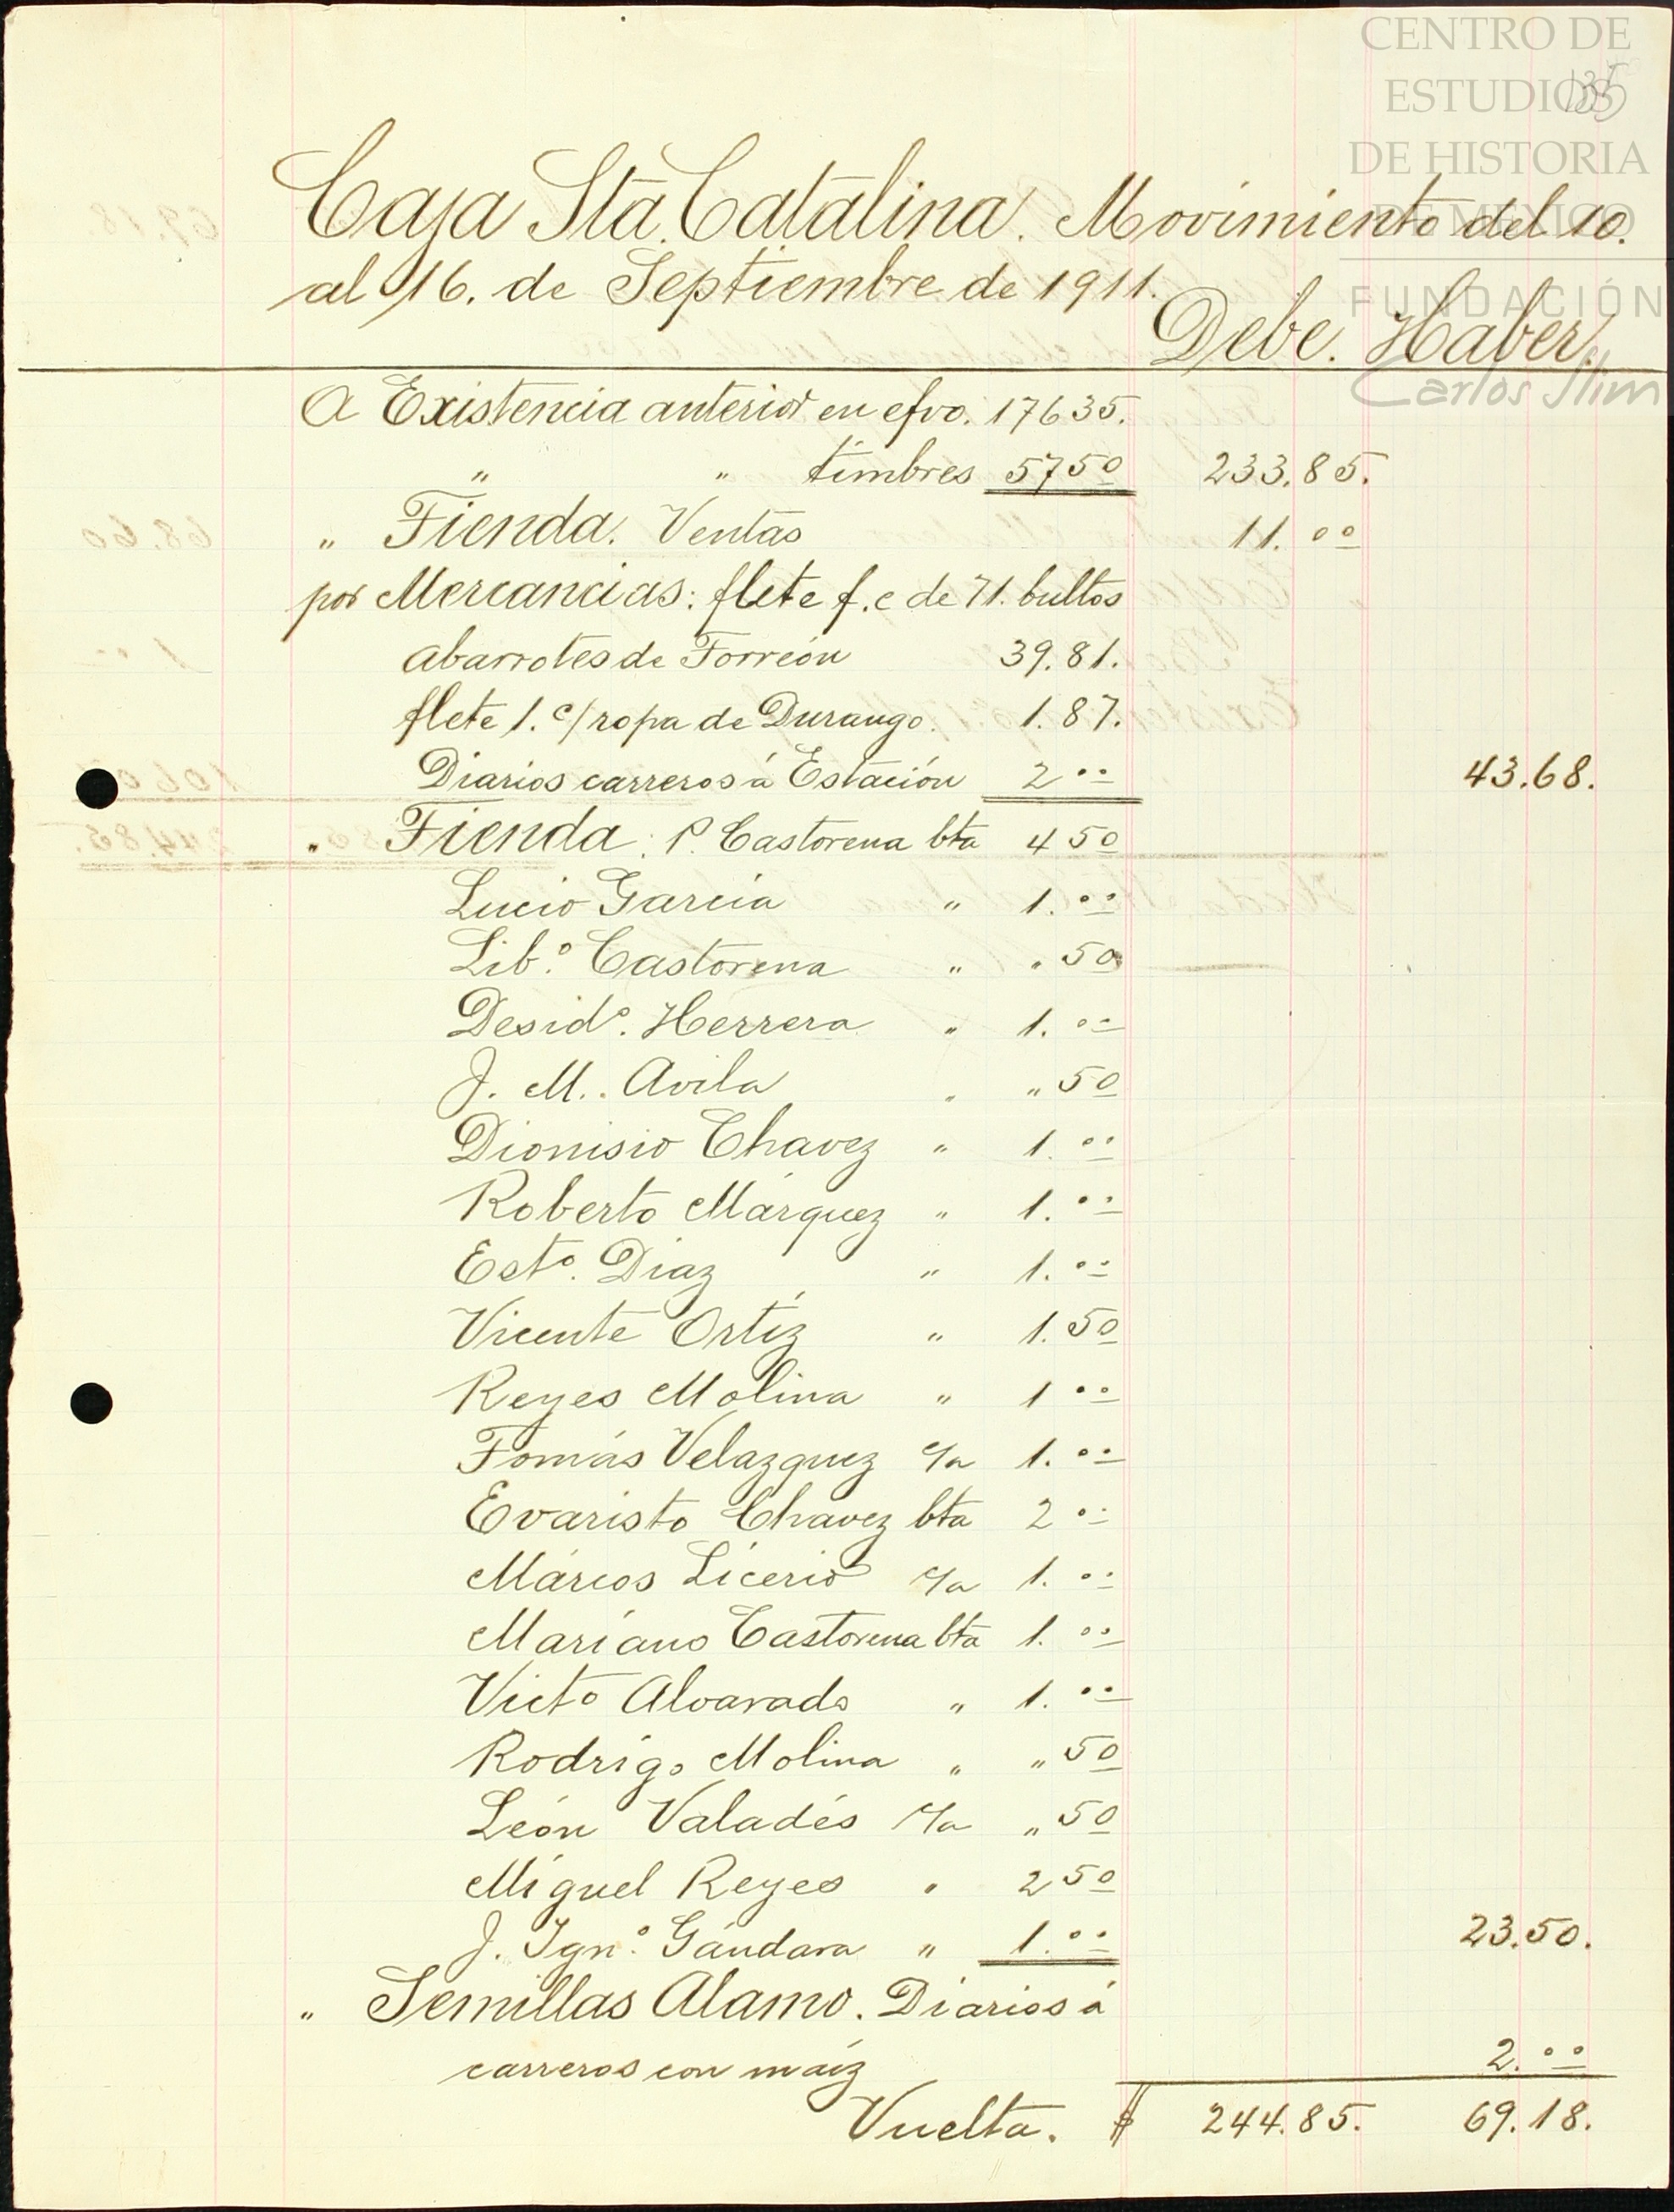 CENTRO DE
ESTUDIOS
DE HISTORIA
DE MÉXICO
FUNDACIÓN
Carlos Slim
135
Caja Sta. Catalina. Movimiento del 10.
al 16. de Septiembre de 1911.
Debe. Haber.
A Existencia anterior en efvo. 176 35.
" " timbres 57 50 233.85.
" Tienda. Ventas 11. 00
por Mercancias: flete f.c de 71. bultos
abarrotes de Torreón 39.81.
flete 1. c/ ropa de Durango. 1.87.
Diarios carreros á Estación 2 00 43.68.
" Tienda. P. Castorena bta 4 50
Lucio Garcia " 1. 00
Lib.o Castorena " " 50
Desido. Herrera " 1. 00
J. M. Avila " " 50
Dionisio Chavez " 1. 00
Roberto Márquez " 1. 00
Eeto. Diaz " 1. 00
Vicente Ortíz " 1. 50
Reyes Molina " 1 00
Tomás Velazquez c/a 1. 00
Evaristo Chavez bta 2 00
Márcos Licerio c/a 1. 00
Mariano Castorena bta 1. 00
Victo Alvarado " 1. 00
Rodrigo Molina " " 50
León Valadés c/a " 50
Miguel Reyes " 2 50
J. Ign.o Gándara " 1. 00 23.50.
" Semillas Alamo. Diarios á
carreros con maíz 2. 00
Vuelta. $ 244.85. 69.18.